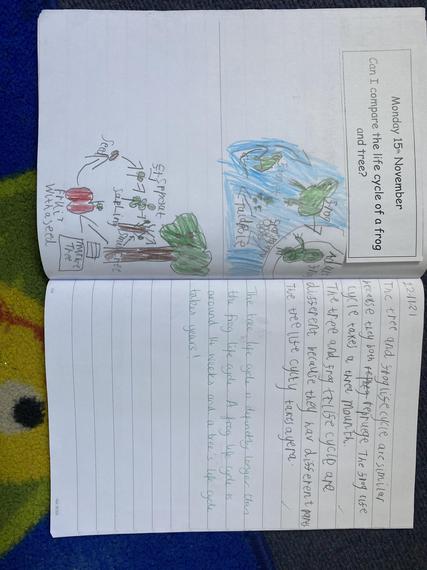 Monday 15th November
Can I compare the life cycle of a frog
and tree?
frog
Tadpole
Seed
sprout
sapling
tree
Fruit
with a seed
12/11/21
The tree and frog life cycle are similar
because they both repruduge The frog life
cycle takes a three mounth
The tree and frog life cycle are
different because they hav different parts
The tree life cycly takes a yera
The tree life cycle is definetly longer than
the frog life cycle. A frog life cycle is
around 16 weeks and a tree's life cycle
takes years!